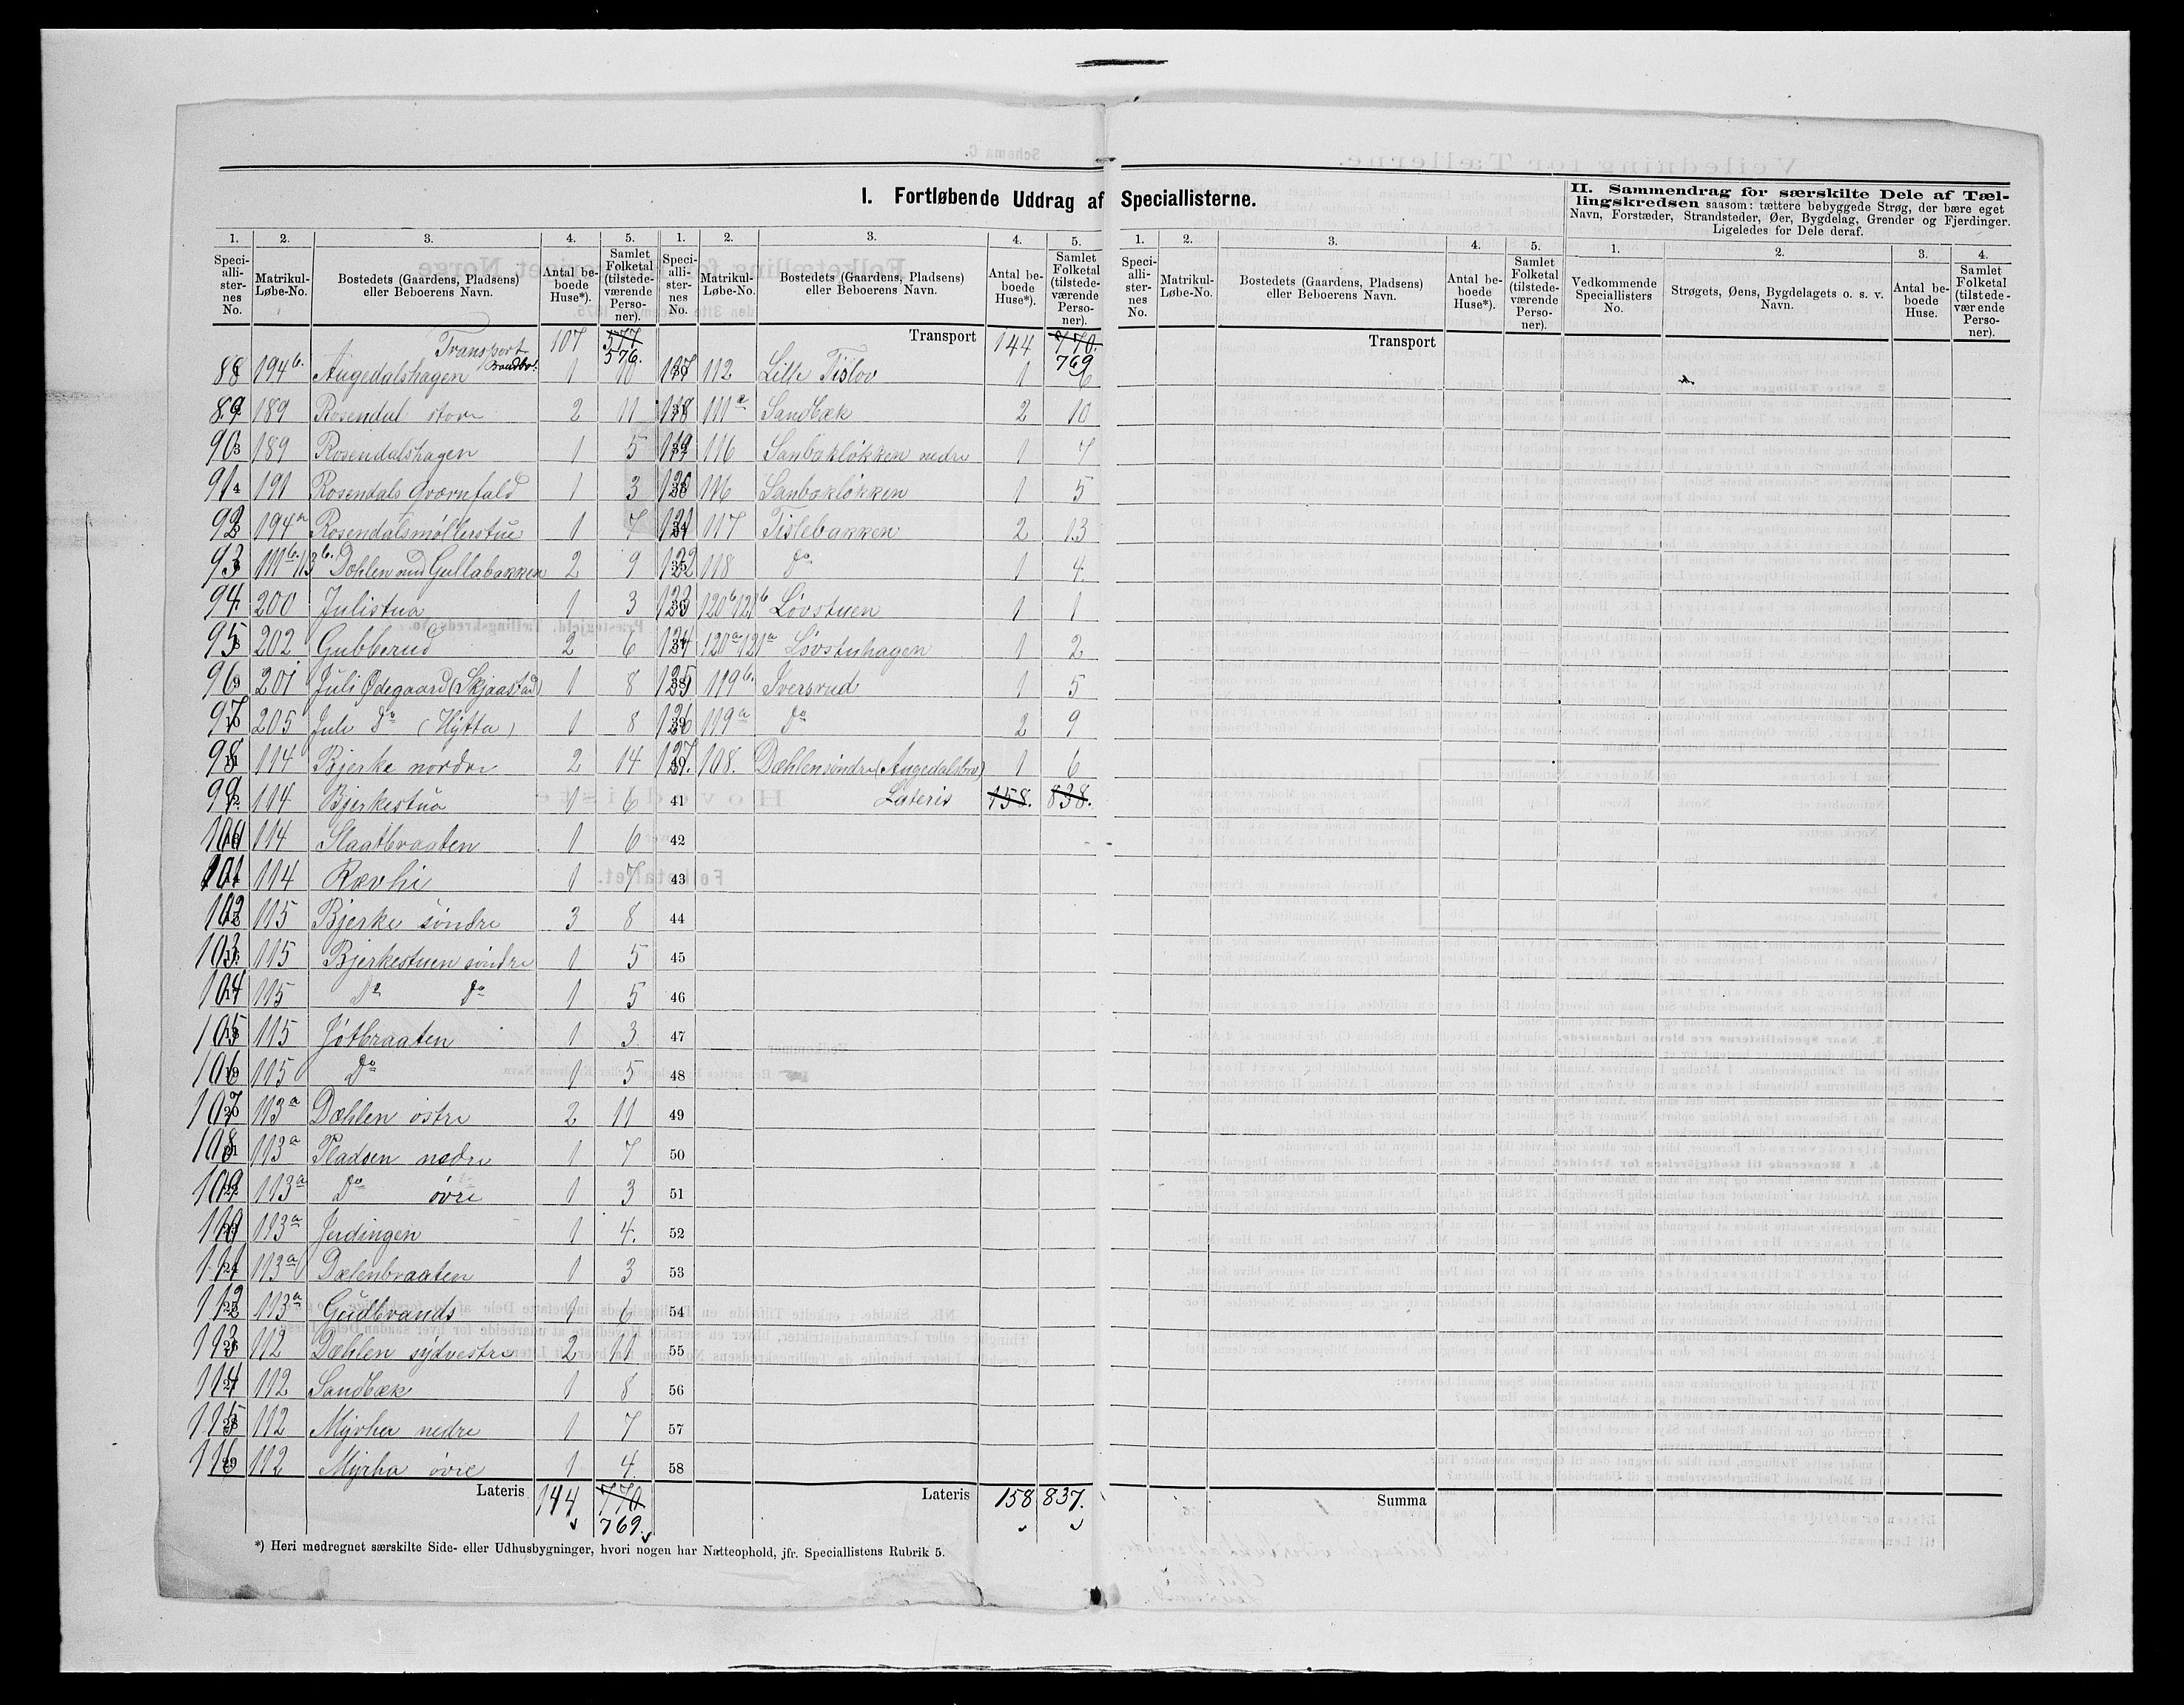 I. Fortløbende Uddrag af Speciallisterne.
II. Sammendrag for særskilte Dele af Tællingskredsen saasom: tættere bebyggede Strøg, der bære eget Navn, Forstæder, Strandsteder, Øer, Bygdelag, Grender og Fjerdinger. Ligeledes for Dele deraf.
1. 2. 3. 4. 5.
Speciallisternes No. Matrikul-Løbe-No. Bostedets (Gaardens, Pladsens) eller Beboerens Navn. Antal beboede Huse*). Samlet Folketal (tilstedeværende Personer).
Transport 107 577 576.
88 194b. Augedalshagen 1 10
89 189 Rosendal store 2 11
90 189 Rosendalshagen 1 5
91 191 Rosendals Qværnfald 1 3
92 194a Rosendalsmøllerstue 1 7
93 111b. 113b. Dæhlen med Gullabakken 2 9
94. 200 Julistua 1 3
95 202 Gubberud 2 6
96 201 Juli Ødegaard (Skjaastad) 1 8
97 205 Juli Do (Hytta) 1 8
98 114 Bjerke nordre 2 14
99 114 Bjerkestua 1 6
100 114 Slaatbraaten 1 6
101 114 Rævhi 1 7
102 115 Bjerke søndre 3 8
103 115 Bjerkestuen søndre 1 5
104 115 Do Do 1 5
105 115 Jøtbraaten 1 3
106 115 Do 1 5
107 113a Dæhlen østre 2 11
108 113a Pladsen nedre 1 7
109 113a Do øvre 1 3
110 113a Jerdingen 1 4.
111 113a Dælenbraaten 1 3
112 113a Gudbrands 1 6
113 112 Dæhlen sydvestre 2 11
114 112 Sandbæk 1 8
115 112 Myrha nedre 1 7
116 112 Myrha øvre 1 4.
Lateris 144 770 769.
*) Heri medregnet særskilte Side- eller Udhusbygninger, hvori nogen har Natteophold, jfr. Speciallistens Rubrik 5.
1. 2. 3. 4. 5.
Speciallisternes No. Matrikul-Løbe-No. Bostedets (Gaardens, Pladsens) eller Beboerens Navn. Antal beboede Huse*). Samlet Folketal (tilstedeværende Personer).
Transport 144 770. 769
117 112 Lille Tislov 1 6
118 111a Sandbæk 2 10
119 116 Sanbækløkken nedre 1 7
120 116 Sanbækløkken 1 5
121 117 Tislebakken 2 13
122 118 Do 1 4.
123 120b 121b Løvstuen 1 1
124 120a 121a Løvstuhagen 1 2
125 119b. Iversrud 1 5
126 119a Do 2 9
127. 108. Dæhlen søndre (Augedalsbro) 1 6
41 Lateris 158. 838.
42
43
44
45
46
47
48
49
50
51
52
53
54
55
56
57
58
Lateris 158 837.
1. 2. 3. 4. 5.
Speciallisternes No. Matrikul-Løbe-No. Bostedets (Gaardens, Pladsens) eller Beboerens Navn. Antal beboede Huse*). Samlet Folketal (tilstedeværende Personer).
Transport
Summa
1. 2. 3. 4.
Vedkommende Speciallisters No. Strøgets, Øens, Bygdelagets o. s. v. Navn. Antal beboede Huse. Samlet Folketal (tilstedeværende Personer).